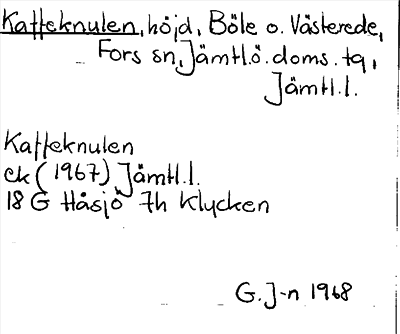 Kaffeknulen, höjd, Böle o. Västerede,
Fors sn, Jämtl.ö.doms.tg,
Jämtl.l.
Kaffeknulen
ek (1967) Jämtl.l.
18 G Håsjö 7h Klycken
G.J-n 1968